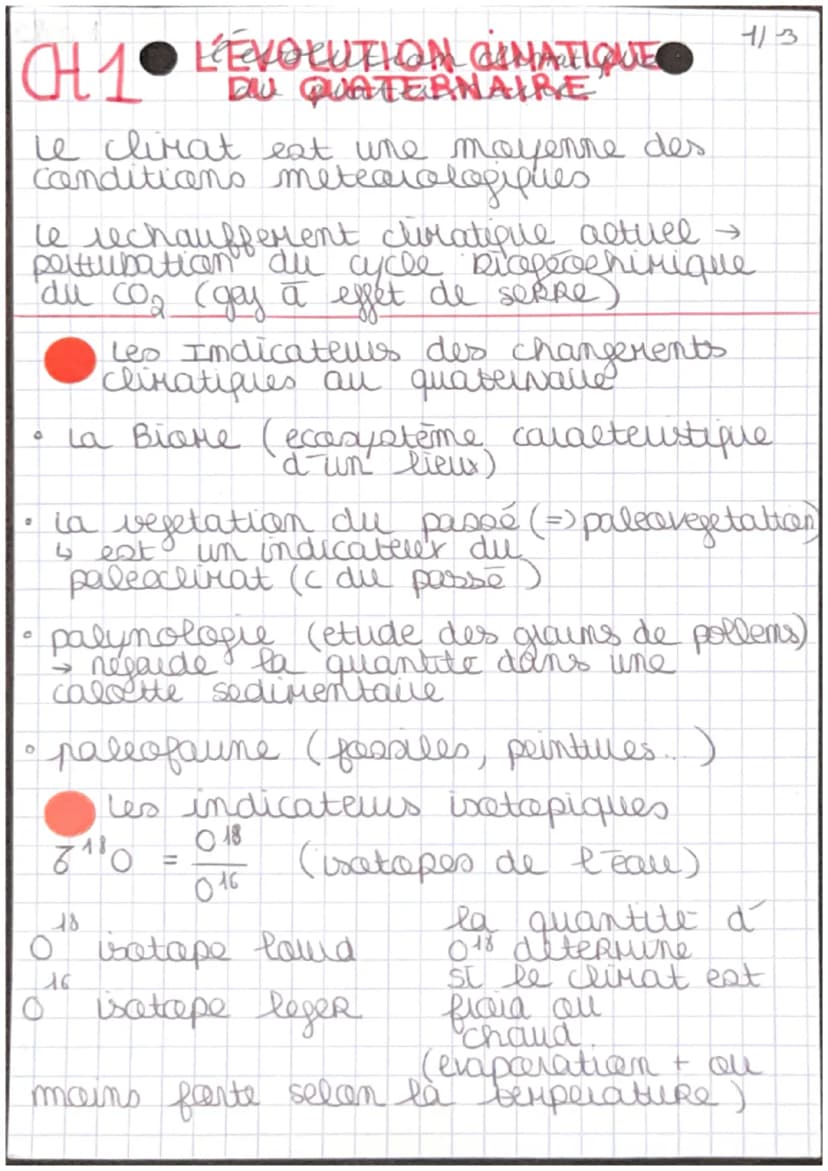 1/3
CH 1 L'ÉVOLUTION CLIMATIQUE
DU QUATERNAIRE
Le climat est une moyenne des
conditions meteorologiques
Le rechauffement climatique actuel →
perturbation du cycle Biogeochimique
du CO₂ (gaz à effet de serre)
Les Indicateurs des changements
climatiques au quaternaire
• La Biome (ecosystème caracteristique
d'un lieux)
• La vegetation du passé (=> paleovegetation)
↳ est un indicateur du
paleoclimat (c du passé)
• palynologie (etude des grains de pollens)
→ regarde la quantité dans une
calotte sedimentaire
• paleofaune (fossiles, peintures...)
Les indicateurs isotopiques
δ¹⁸O = O¹⁸/O¹⁶ (isotopes de l'eau)
O¹⁸ isotope lourd
O¹⁶ isotope leger
la quantité d'
O¹⁸ determine
si le climat est
froid ou
chaud.
(evaporation + ou
moins forte selon la temperature)